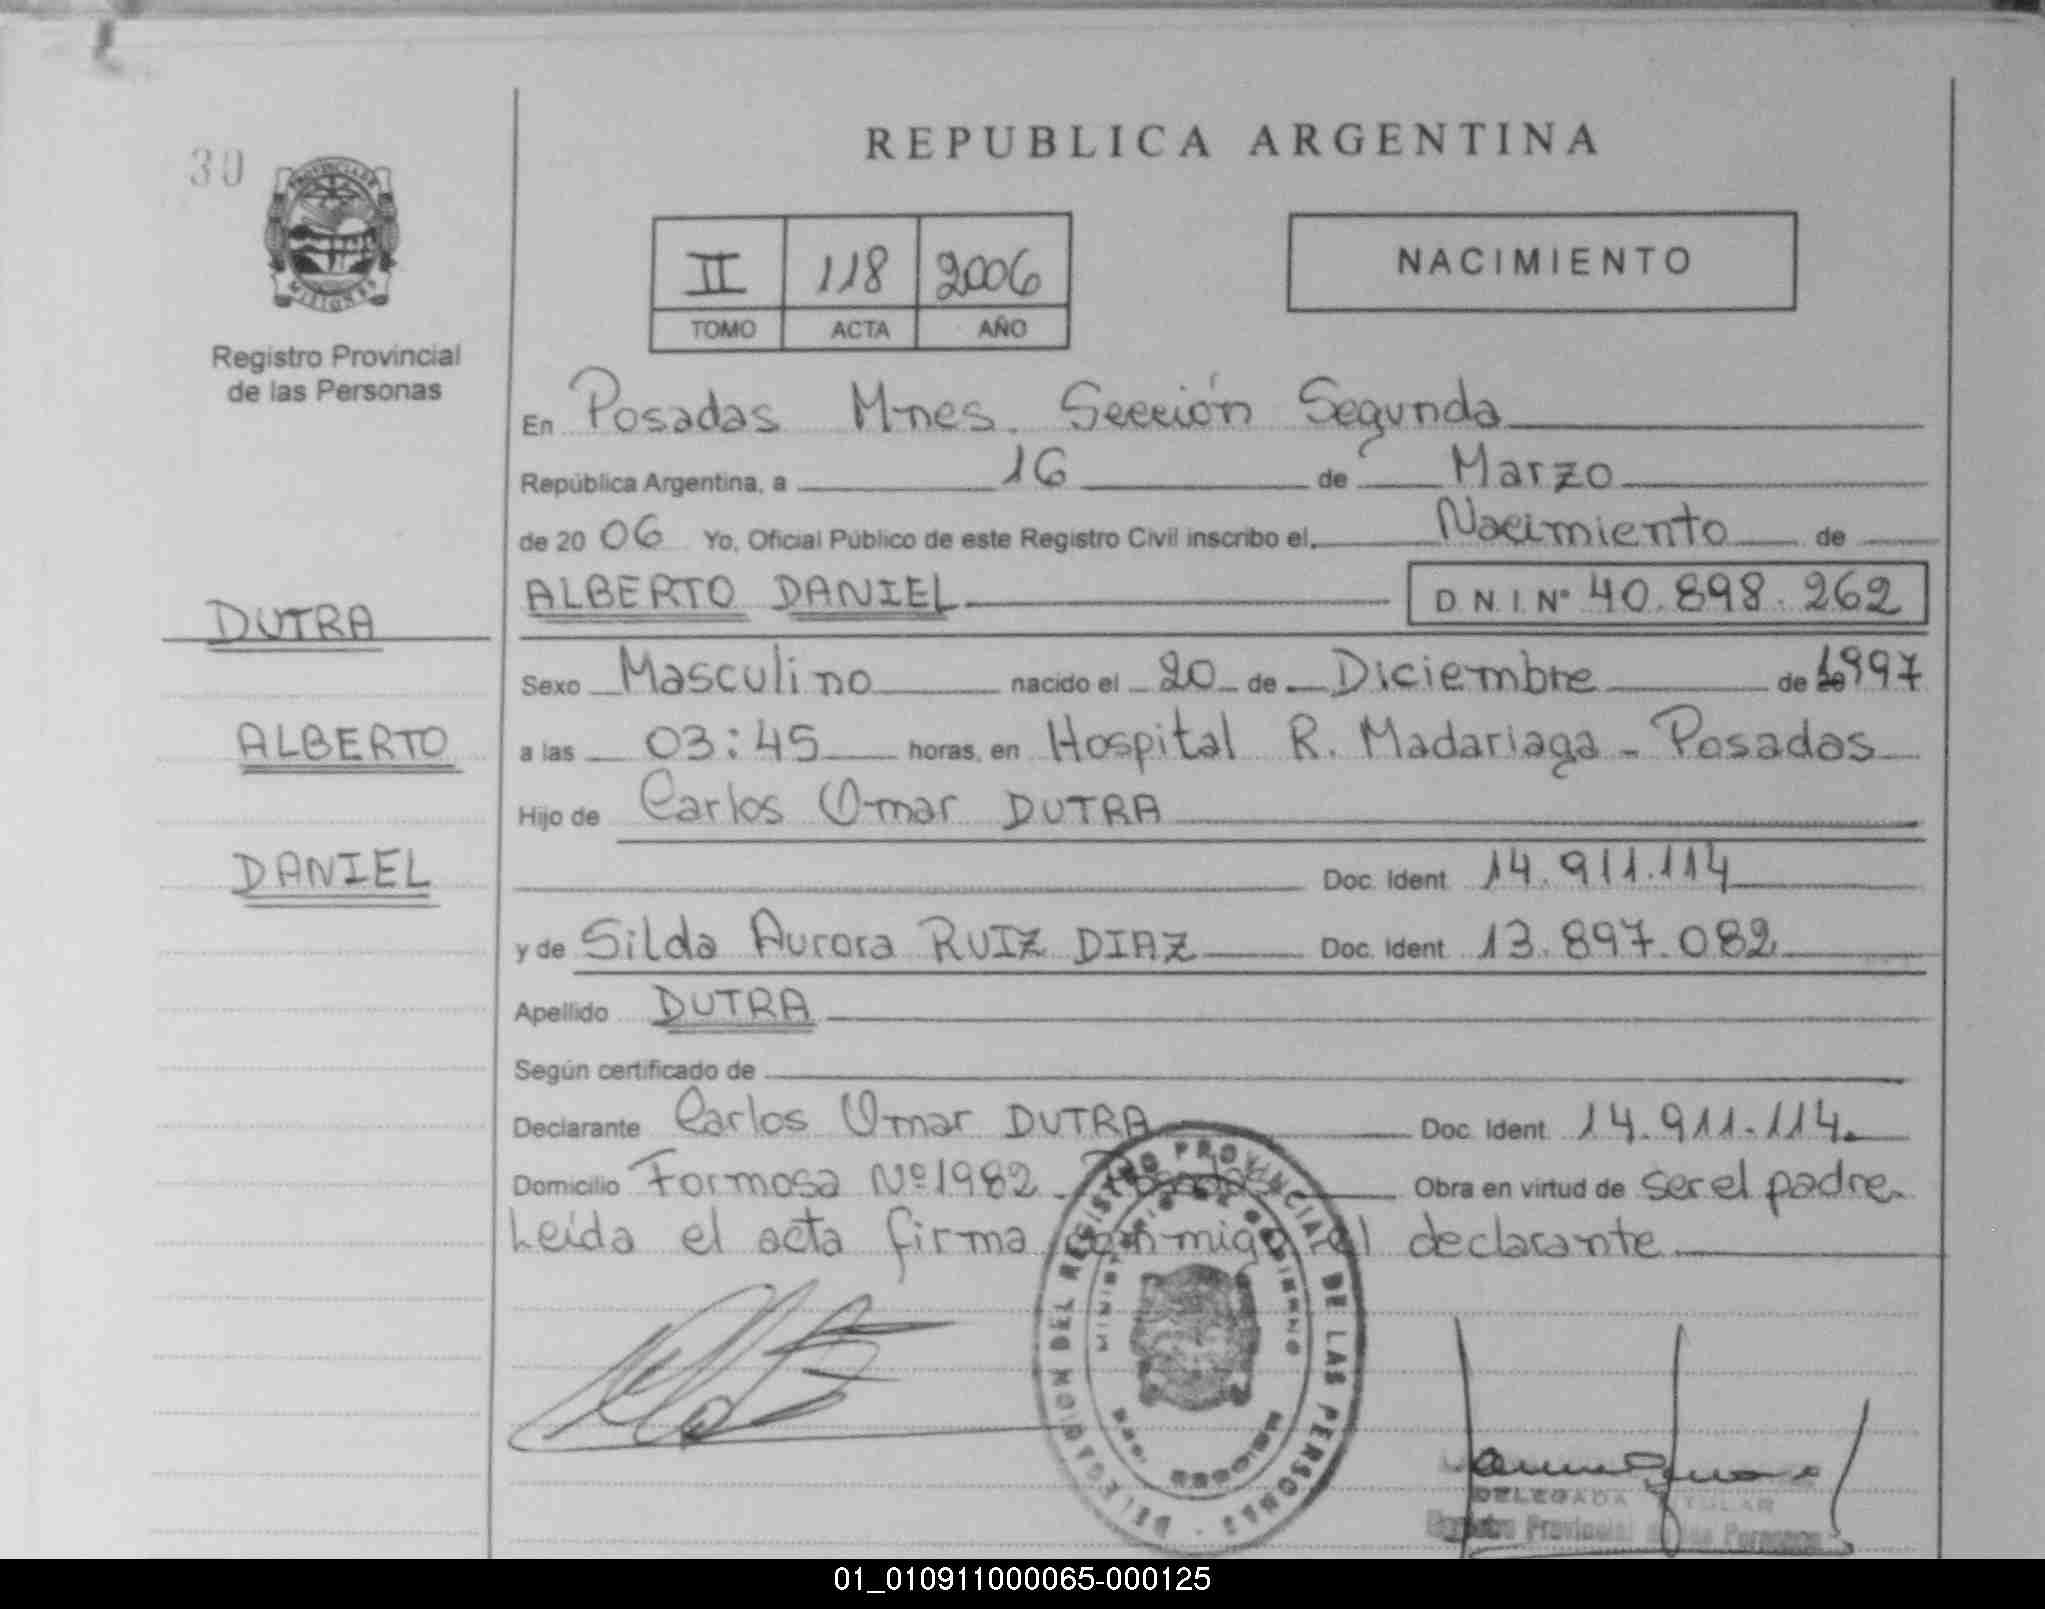 REPUBLICA ARGENTINA
30
PROVINCIA DE
MISIONES
Registro Provincial
de las Personas
II 118 2006
TOMO ACTA AÑO
NACIMIENTO
En Posadas Mnes. Sección Segunda
República Argentina, a 16 de Marzo
de 20 06 Yo, Oficial Público de este Registro Civil inscribo el, Nacimiento de
ALBERTO DANIEL D.N.I. Nº 40.898.262
DUTRA
ALBERTO
DANIEL
Sexo Masculino nacido el 20 de Diciembre de 1997
a las 03:45 horas, en Hospital R. Madariaga - Posadas
Hijo de Carlos Omar DUTRA
Doc. Ident 14.911.114
y de Silda Aurora RUIZ DIAZ Doc. Ident 13.897.082
Apellido DUTRA
Según certificado de
Declarante Carlos Omar DUTRA Doc. Ident. 14.911.114.
Domicilio Formosa Nº 1982 - Posadas Obra en virtud de ser el padre.
Leída el acta firma conmigo el declarante
DELEGACION DEL REGISTRO PROVINCIAL DE LAS PERSONAS
MINISTERIO DE GOBIERNO
MISIONES
DELEGADA TITULAR
Registro Provincial de las Personas
01_010911000065-000125